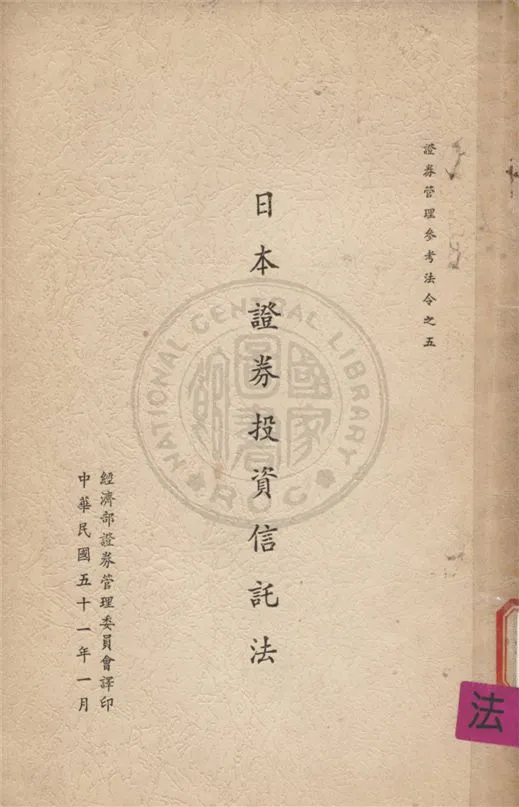 證券管理參考法令之五
日本證券投資信託法
經濟部證券管理委員會譯印
中華民國五十一年一月
NATIONAL CENTRAL LIBRARY
R.O.C
國家圖書館
法